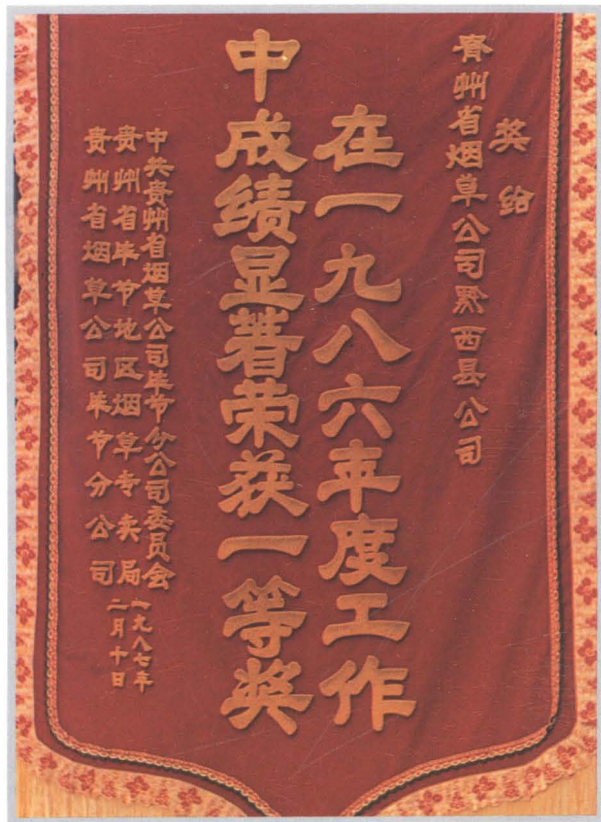 奖给
贵州省烟草公司黔西县公司
在一九八六年度工作
中成绩显著荣获一等奖
中共贵州省烟草公司毕节分公司委员会
贵州省毕节地区烟草专卖局
贵州省烟草公司毕节分公司
一九八七年
二月十日